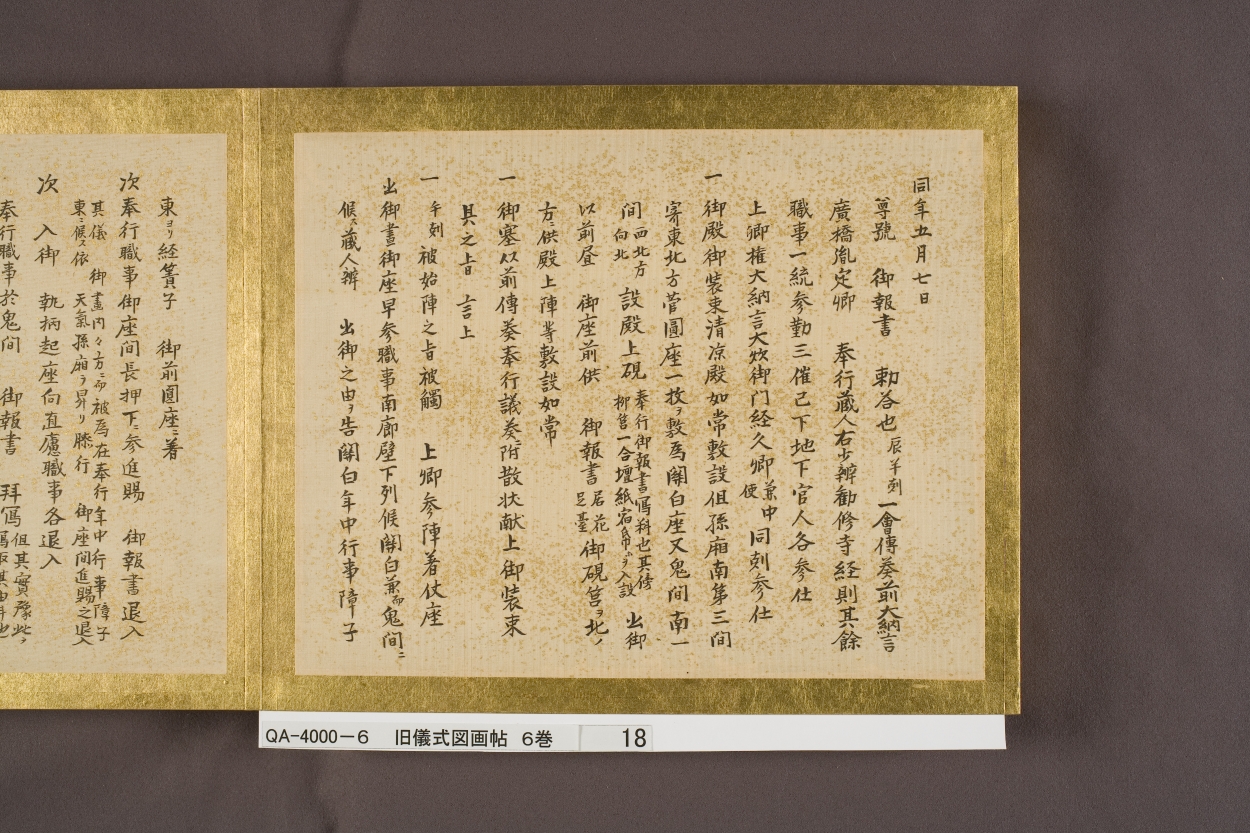 同年五月七日
尊號　御報書　勅答也辰半刻一會傳奏前大納言
廣橋胤定卿　奉行蔵人右少辨勧修寺経則其餘
職事一統参勤三催已下地下官人各参仕
上卿権大納言大炊御門経久卿兼中使同刻参仕
一御殿御装束清凉殿如常敷設但孫廂南第三間
寄東北方菅圓座一枚ヲ敷為関白座又鬼間南一
間西北方向北設殿上硯奉行御報書寫料也其傍柳筥一合壇紙宿帋等ヲ入設出御
以前昼　御座前供　御報書居花足臺御硯筥ヲ北ノ
方ニ供殿上陣等敷設如常
一御塞以前傳奏奉行議奏附散状献上御装束
具之上旨　言上
一午刻被始陣之旨被觸　上卿参陣着仗座
出御晝御座早参職事南廊壁下列候関白兼而鬼間ニ
候ス蔵人辨　出御之由ヲ告関白年中行事障子
東ヨリ経簀子　御前圓座ニ着
次奉行職事御座間長押下ニ参進賜　御報書退入
其儀　御晝内々方ニ而被為在奉行年中行事障子
東ニ候ス依　天氣孫廂ヲ昇リ膝行　御座間進賜之退入
次　入御　執柄起座向直廬職事各退入
奉行職事於鬼間　御報書　拜寫但其實豫此ヲ
QA-4000-6　旧儀式図画帖　6巻　18